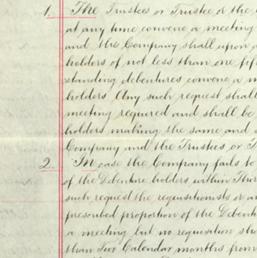 1. The Trustees or Trustee or the
at any time convene a meeting
and the Company shall upon a
holders of not less than one fif
standing debentures convene a m
holders Any such request shall
meeting required and shall be
holders making the same and
Company and the Trustees or T
2. In case the Company fails to
of the Debenture holders within Thir
such request the requisitionists or a
prescribed proportion of the Debent
a meeting but no requisition sh
than Two Calendar months from